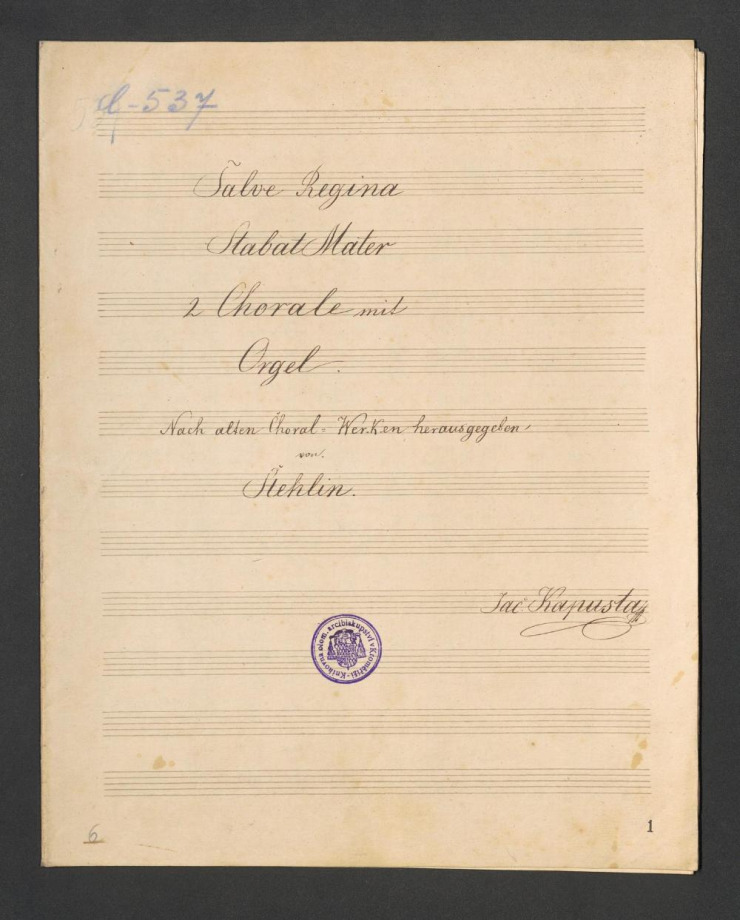 A-537
Salve Regina
Stabat Mater
2 Chorale mit
Orgel.
Nach alten Choral=Werken herausgegeben
von.
Stehlin.
Kapusta
Knihovna olom. arcibiskupství v Kroměříži
6
1